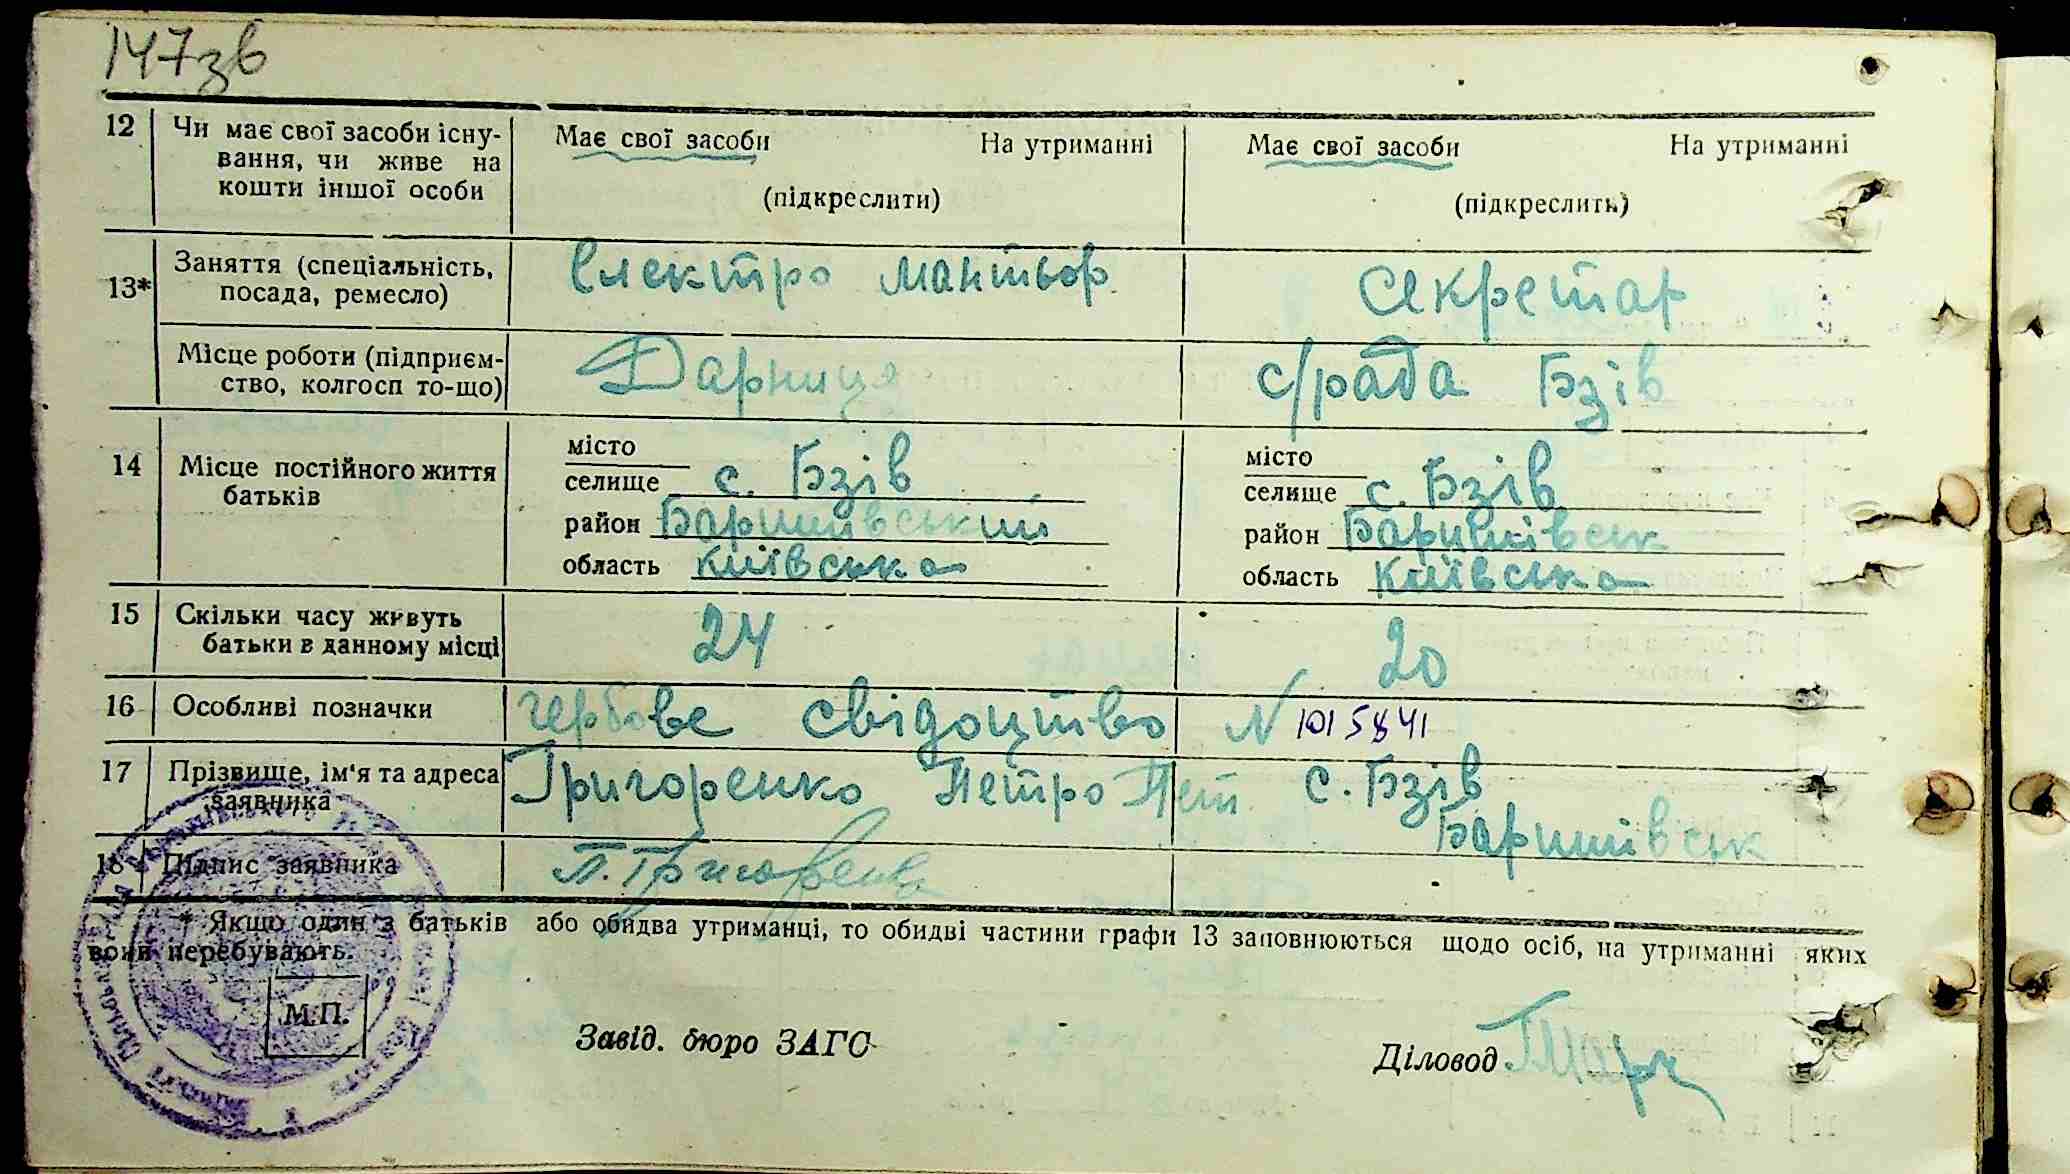 147зв
12 Чи має свої засоби існу- Має свої засоби На утриманні Має свої засоби На утриманні
вання, чи живе на
кошти іншої особи (підкреслити) (підкреслить)
13* Заняття (спеціальність, Електро мантьор Секретар
посада, ремесло)
Місце роботи (підприєм- Дарниця с/рада Бзів
ство, колгосп то-що)
14 Місце постійного життя місто місто
батьків селище с. Бзів селище с. Бзів
район Баришівський район Баришівськ
область Київська область Київська
15 Скільки часу живуть 24 20
батьки в данному місці
16 Особливі позначки гербове свідоцтво N 1015841
17 Прізвище, ім'я та адреса Григоренко Петро Пет. с. Бзів
заявника Баришівськ
18 Підпис заявника П. Григоренко
* Якщо один з батьків або обидва утриманці, то обидві частини графи 13 заповнюються щодо осіб, на утриманні яких
вони перебувають.
М.П.
Завід. бюро ЗАГС Діловод